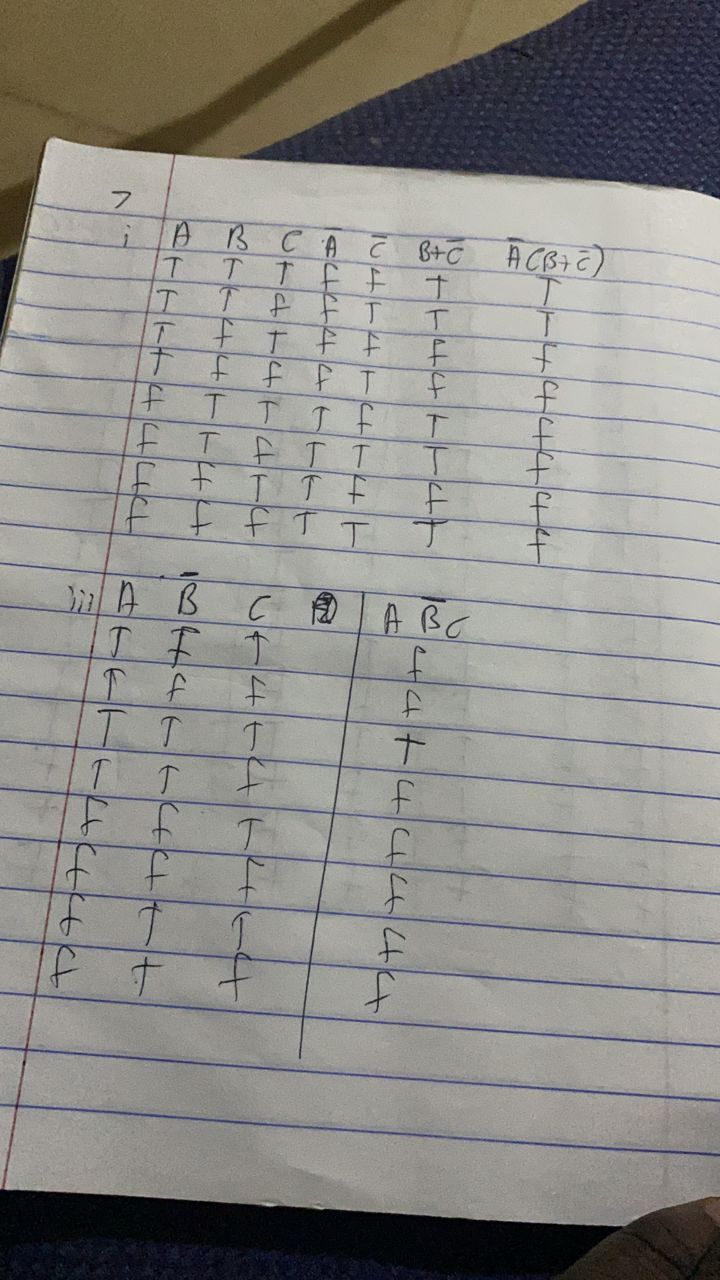 7
i A B C Ā C̄ B+C̄ Ā(B+C̄)
T T T f f T T
T T f f T T T
T f T f f f f
T f f f T f f
f T T T f T f
f T f T T T f
f f T T f f f
f f f T T T f
iii A B̄ C A B̄ C
T F T f
T f f f
T T T T
T T f f
f f T f
f f f f
f T T f
f T f f